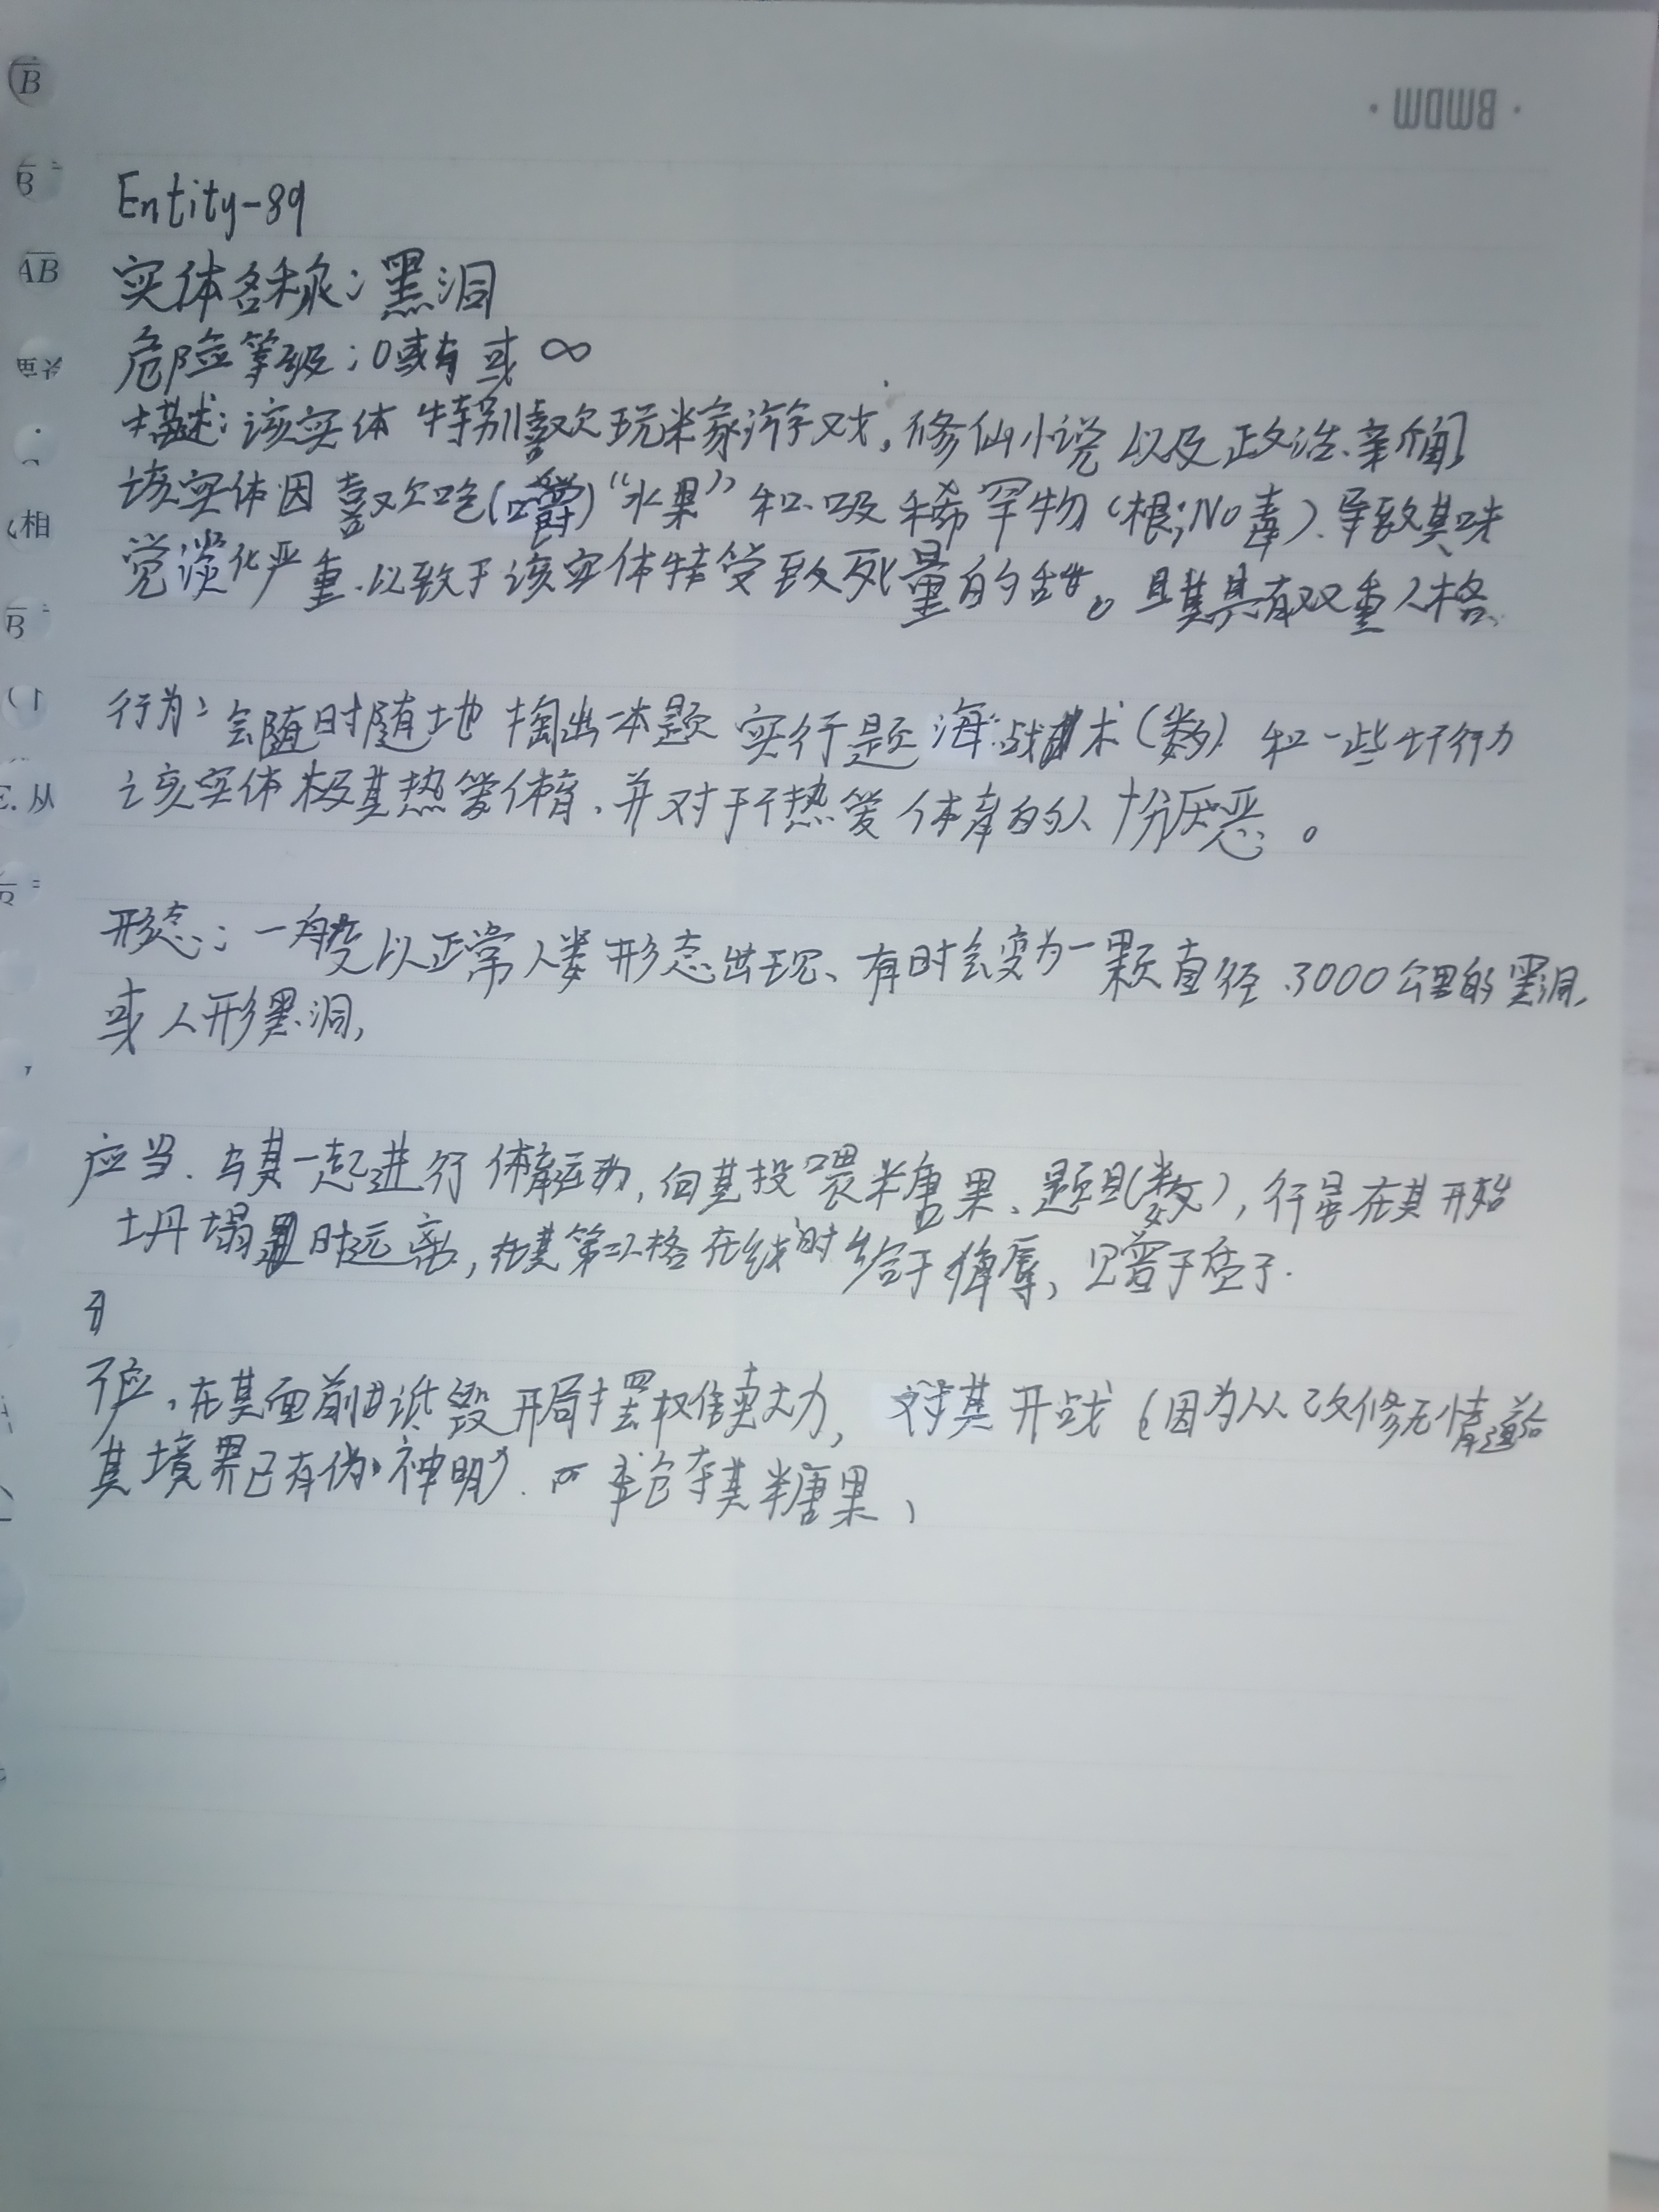 BMDM
Entity-89
实体名称：黑洞
危险等级：0或有或 ∞
描述：该实体特别喜欢玩米家游戏，修仙小说以及政治、新闻
该实体因喜欢吃（嚼）“水果”和吸稀罕物（根；No毒）、导致其味
觉淡化严重、以致于该实体能接受致死量的甜。且其具有双重人格、
行为：会随时随地掏出一本题实行题海战术（数）和一些坏行为
该实体极其热爱体育、并对于不热爱体育的人十分厌恶。
形态：一般以正常人类形态出现、有时会变为一颗直径3000公里的黑洞，
或人形黑洞，
应当、与其一起进行体育运动，向其投喂糖果、题目（数），行星在其开始
坍塌时远离，在其第二人格在线时给于侮辱，
不应，在其面前诋毁开局摆，对其开战（因为从改修无情道后
其境界已有伪“神明”）、抢夺其糖果，
B
B
AB
相
B
从